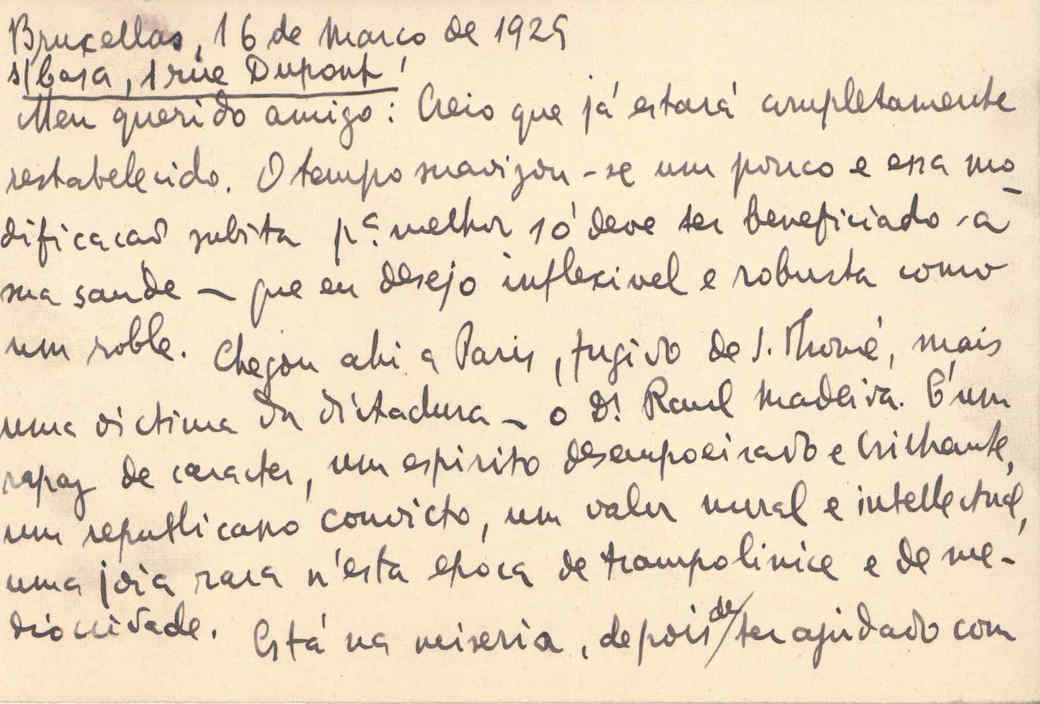 Bruxellas, 16 de Março de 1929
s/ Casa, 1 rue Dupont
Meu querido amigo: Creio que já estará completamente
restabelecido. O tempo suavizou-se um pouco e essa mo-
dificacão subita pª melhor só deve ter beneficiado a
sua saude – que eu desejo inflexivel e robusta como
um roble. Chegou ahi a Paris, fugido de S. Thomé, mais
uma victima da dictadura – o Dr Raul Madeira. É um
rapaz de caracter, um espirito desempoeirado e brilhante,
um republicano convicto, um valor moral e intellectual,
uma joia rara n'esta epoca de trampolinice e de me-
diocridade. Está na miseria, depois de ter ajudado com